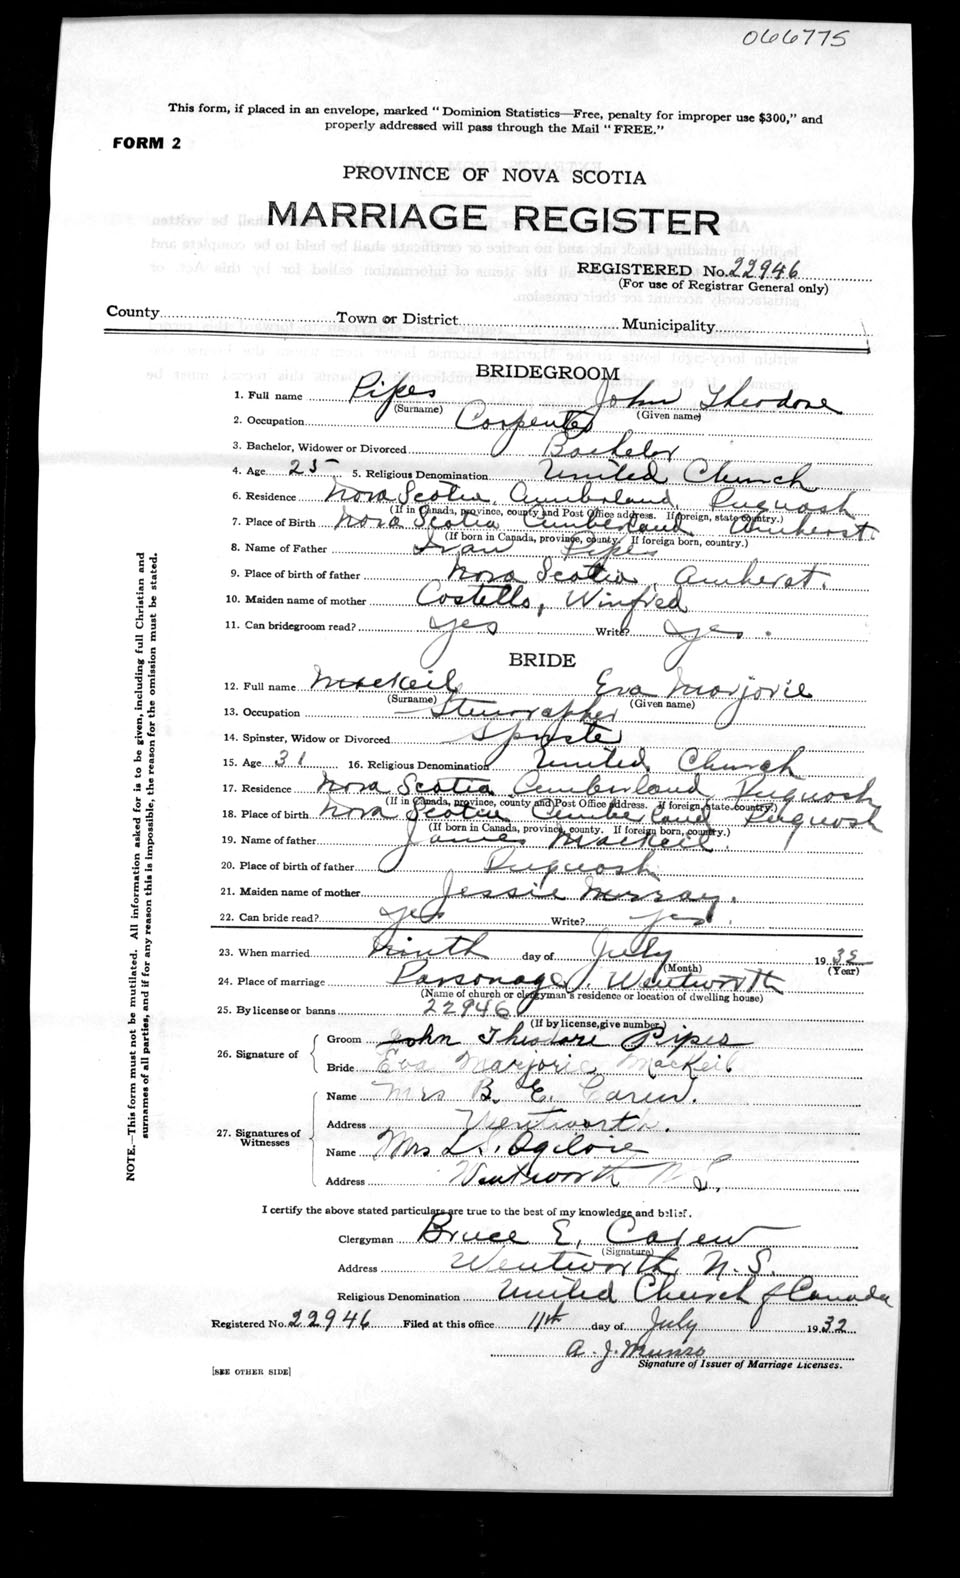 066775
This form, if placed in an envelope, marked "Dominion Statistics—Free, penalty for improper use $300," and
properly addressed will pass through the Mail "FREE."
FORM 2
PROVINCE OF NOVA SCOTIA
MARRIAGE REGISTER
REGISTERED No. 22946
(For use of Registrar General only)
County Town or District Municipality
BRIDEGROOM
1. Full name Pipes John Theodore
(Surname) (Given name)
2. Occupation Carpenter
3. Bachelor, Widower or Divorced Bachelor
4. Age 25 5. Religious Denomination United Church
6. Residence Nova Scotia, Cumberland Pugwash
(If in Canada, province, county and Post Office address. If foreign, state country.)
7. Place of Birth Nova Scotia Cumberland Amherst
(If born in Canada, province, county. If foreign born, country.)
8. Name of Father Ivan Pipes
9. Place of birth of father Nova Scotia, Amherst.
10. Maiden name of mother Costello, Winfred
11. Can bridegroom read? yes Write? yes.
BRIDE
12. Full name MacKeil Eva Marjorie
(Surname) (Given name)
13. Occupation Stenographer
14. Spinster, Widow or Divorced Spinster
15. Age 31 16. Religious Denomination United Church
17. Residence Nova Scotia Cumberland Pugwash
(If in Canada, province, county and Post Office address. If foreign, state country.)
18. Place of birth Nova Scotia Cumberland Pugwash
(If born in Canada, province, county. If foreign born, country.)
19. Name of father James MacKeil.
20. Place of birth of father Pugwash
21. Maiden name of mother Jessie Murray.
22. Can bride read? yes Write? yes.
23. When married Ninth day of July 1932
(Month) (Year)
24. Place of marriage Parsonage, Wentworth
(Name of church or clergyman's residence or location of dwelling house)
25. By license or banns 22946
(If by license, give number)
26. Signature of Groom John Theodore Pipes
Bride Eva Marjorie MacKeil
27. Signatures of Witnesses Name Mrs B. E. Carew.
Address Wentworth.
Name Mrs L. Ogilvie
Address Wentworth N.S.
I certify the above stated particulars are true to the best of my knowledge and belief.
Clergyman Bruce E. Carew
(Signature)
Address Wentworth, N.S.
Religious Denomination United Church of Canada
Registered No. 22946 Filed at this office 11th day of July 1932
A. J. Munro
Signature of Issuer of Marriage Licenses.
[SEE OTHER SIDE]
NOTE.—This form must not be mutilated. All information asked for is to be given, including full Christian and
surnames of all parties, and if for any reason this is impossible, the reason for the omission must be stated.